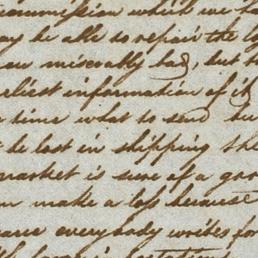 commission which we
may be able to repair the
miserably bad, but
earliest information of it
time what to send
be lost in shipping the
market is sure of a
make a loss because
everybody writes for